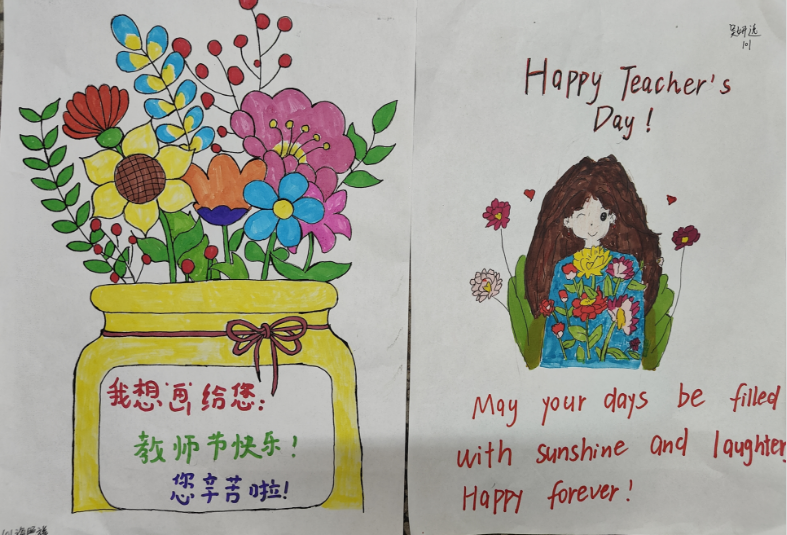 我想画给您:
教师节快乐!
您辛苦啦!
101
吴妍遥
101
Happy Teacher's
Day!
May your days be filled
with sunshine and laughter
Happy forever!